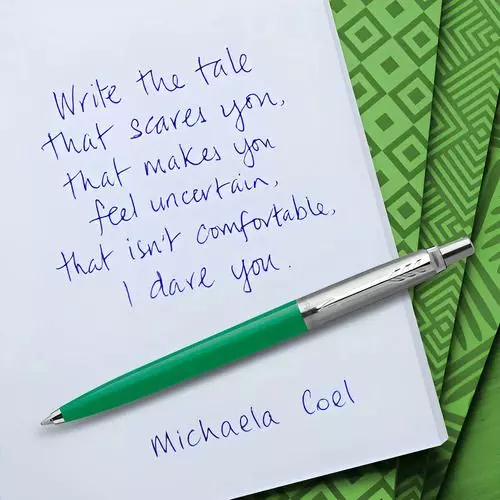 Write the tale
that scares you,
that makes you
feel uncertain,
that isn't comfortable,
I dare you.
Michaela Coel